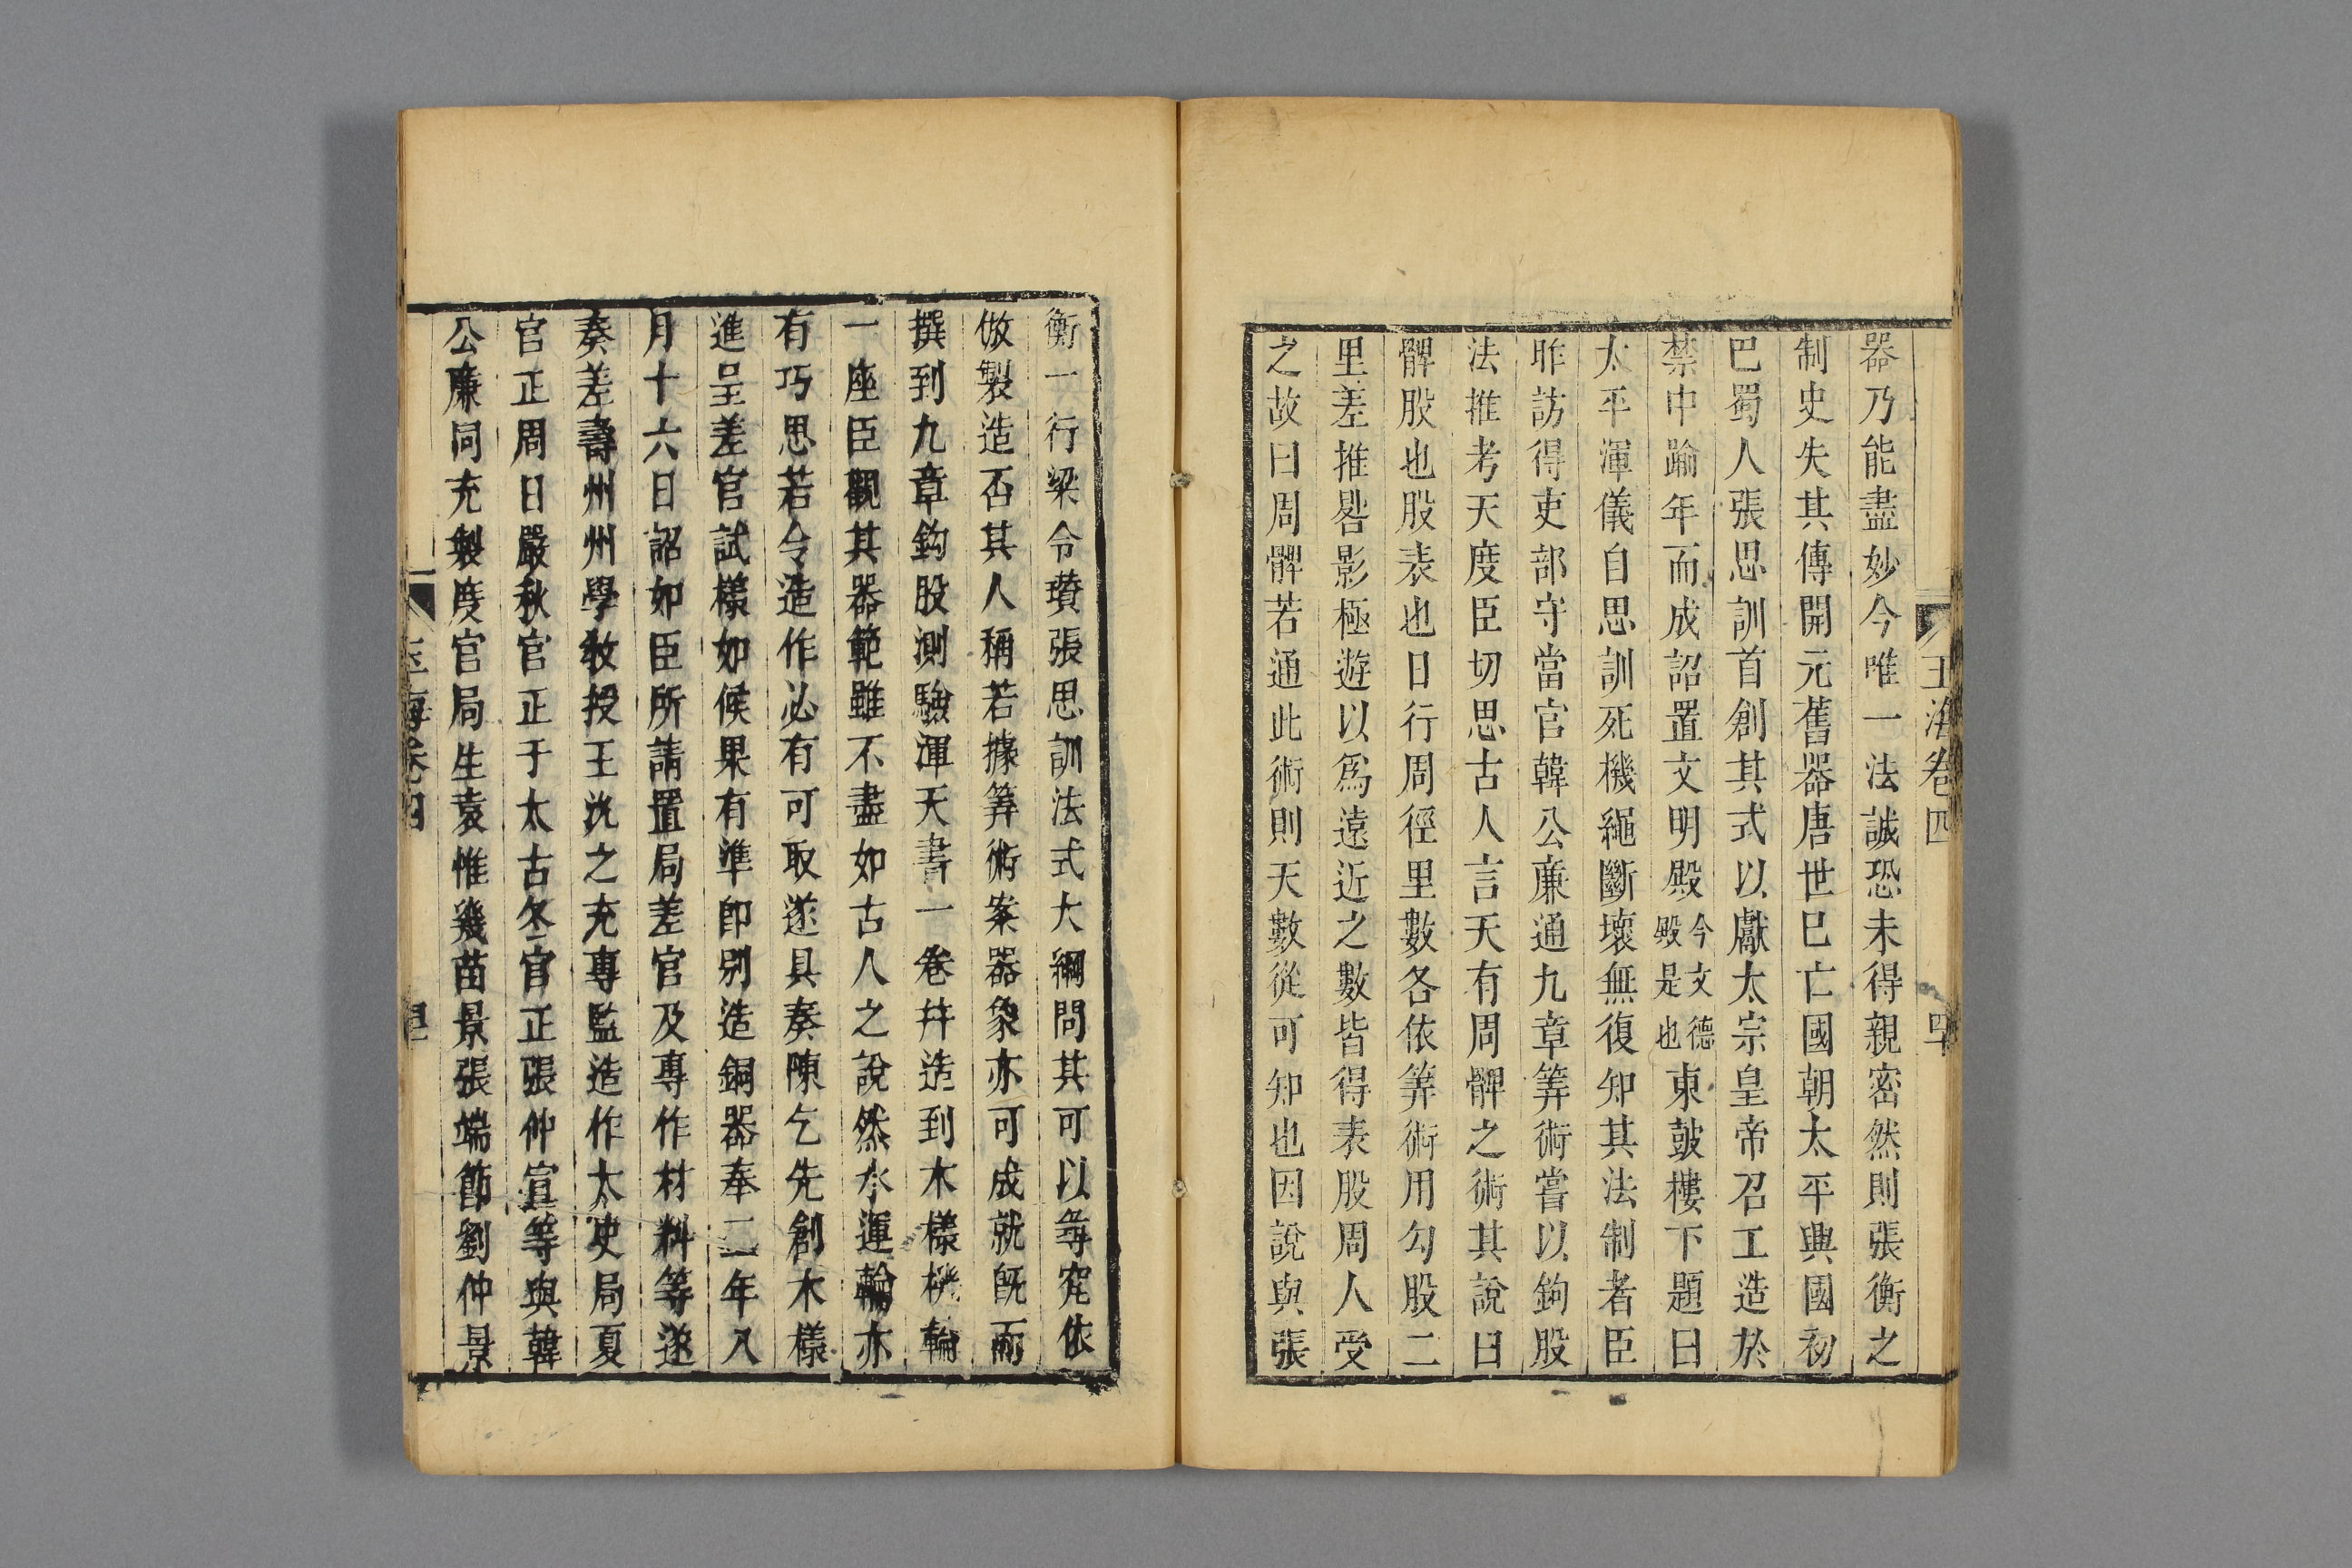 玉海卷四 四十
器乃能盡妙今唯一法誠恐未得親密然則張衡之
制史失其傳開元舊器唐世巳亡國朝太平興國初
巴蜀人張思訓首創其式以獻太宗皇帝召工造於
禁中踰年而成詔置文明殿今文德殿是也東皷樓下題曰
太平渾儀自思訓死機繩斷壞無復知其法制者臣
昨訪得吏部守當官韓公廉通九章筭術嘗以鉤股
法推考天度臣切思古人言天有周髀之術其說曰
髀股也股表也日行周徑里數各依筭術用勾股二
里差推晷影極遊以爲遠近之數皆得表股周人受
之故曰周髀若通此術則天數從可知也因說與張
衡一行梁令瓚張思訓法式大綱問其可以㝷究依
倣製造否其人稱若據筭術案器象亦可成就旣而
撰到九章鈎股測驗渾天書一卷幷造到木樣機輪
一座臣觀其器範雖不盡如古人之說然水運輪亦
有巧思若令造作必有可取遂具奏陳乞先創木樣
進呈差官試樣如候果有準卽別造銅器奉二年八
月十六日詔如臣所請置局差官及專作材料等遂
奏差壽州州學敎授王沇之充專監造作太史局夏
官正周日嚴秋官正于太古冬官正張仲宣等與韓
公廉同充製度官局生袁惟幾苗景張端節劉仲景
玉海卷四